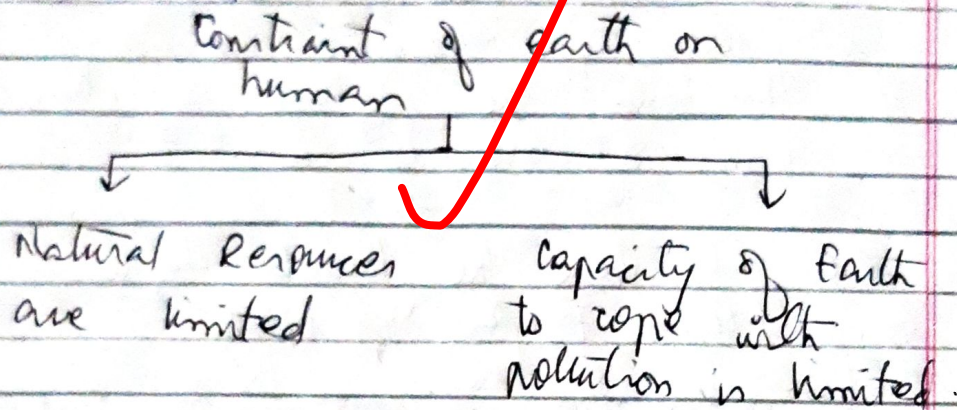 Constraint of earth on
human
Natural Resources
are limited
Capacity of Earth
to cope with
pollution is limited.